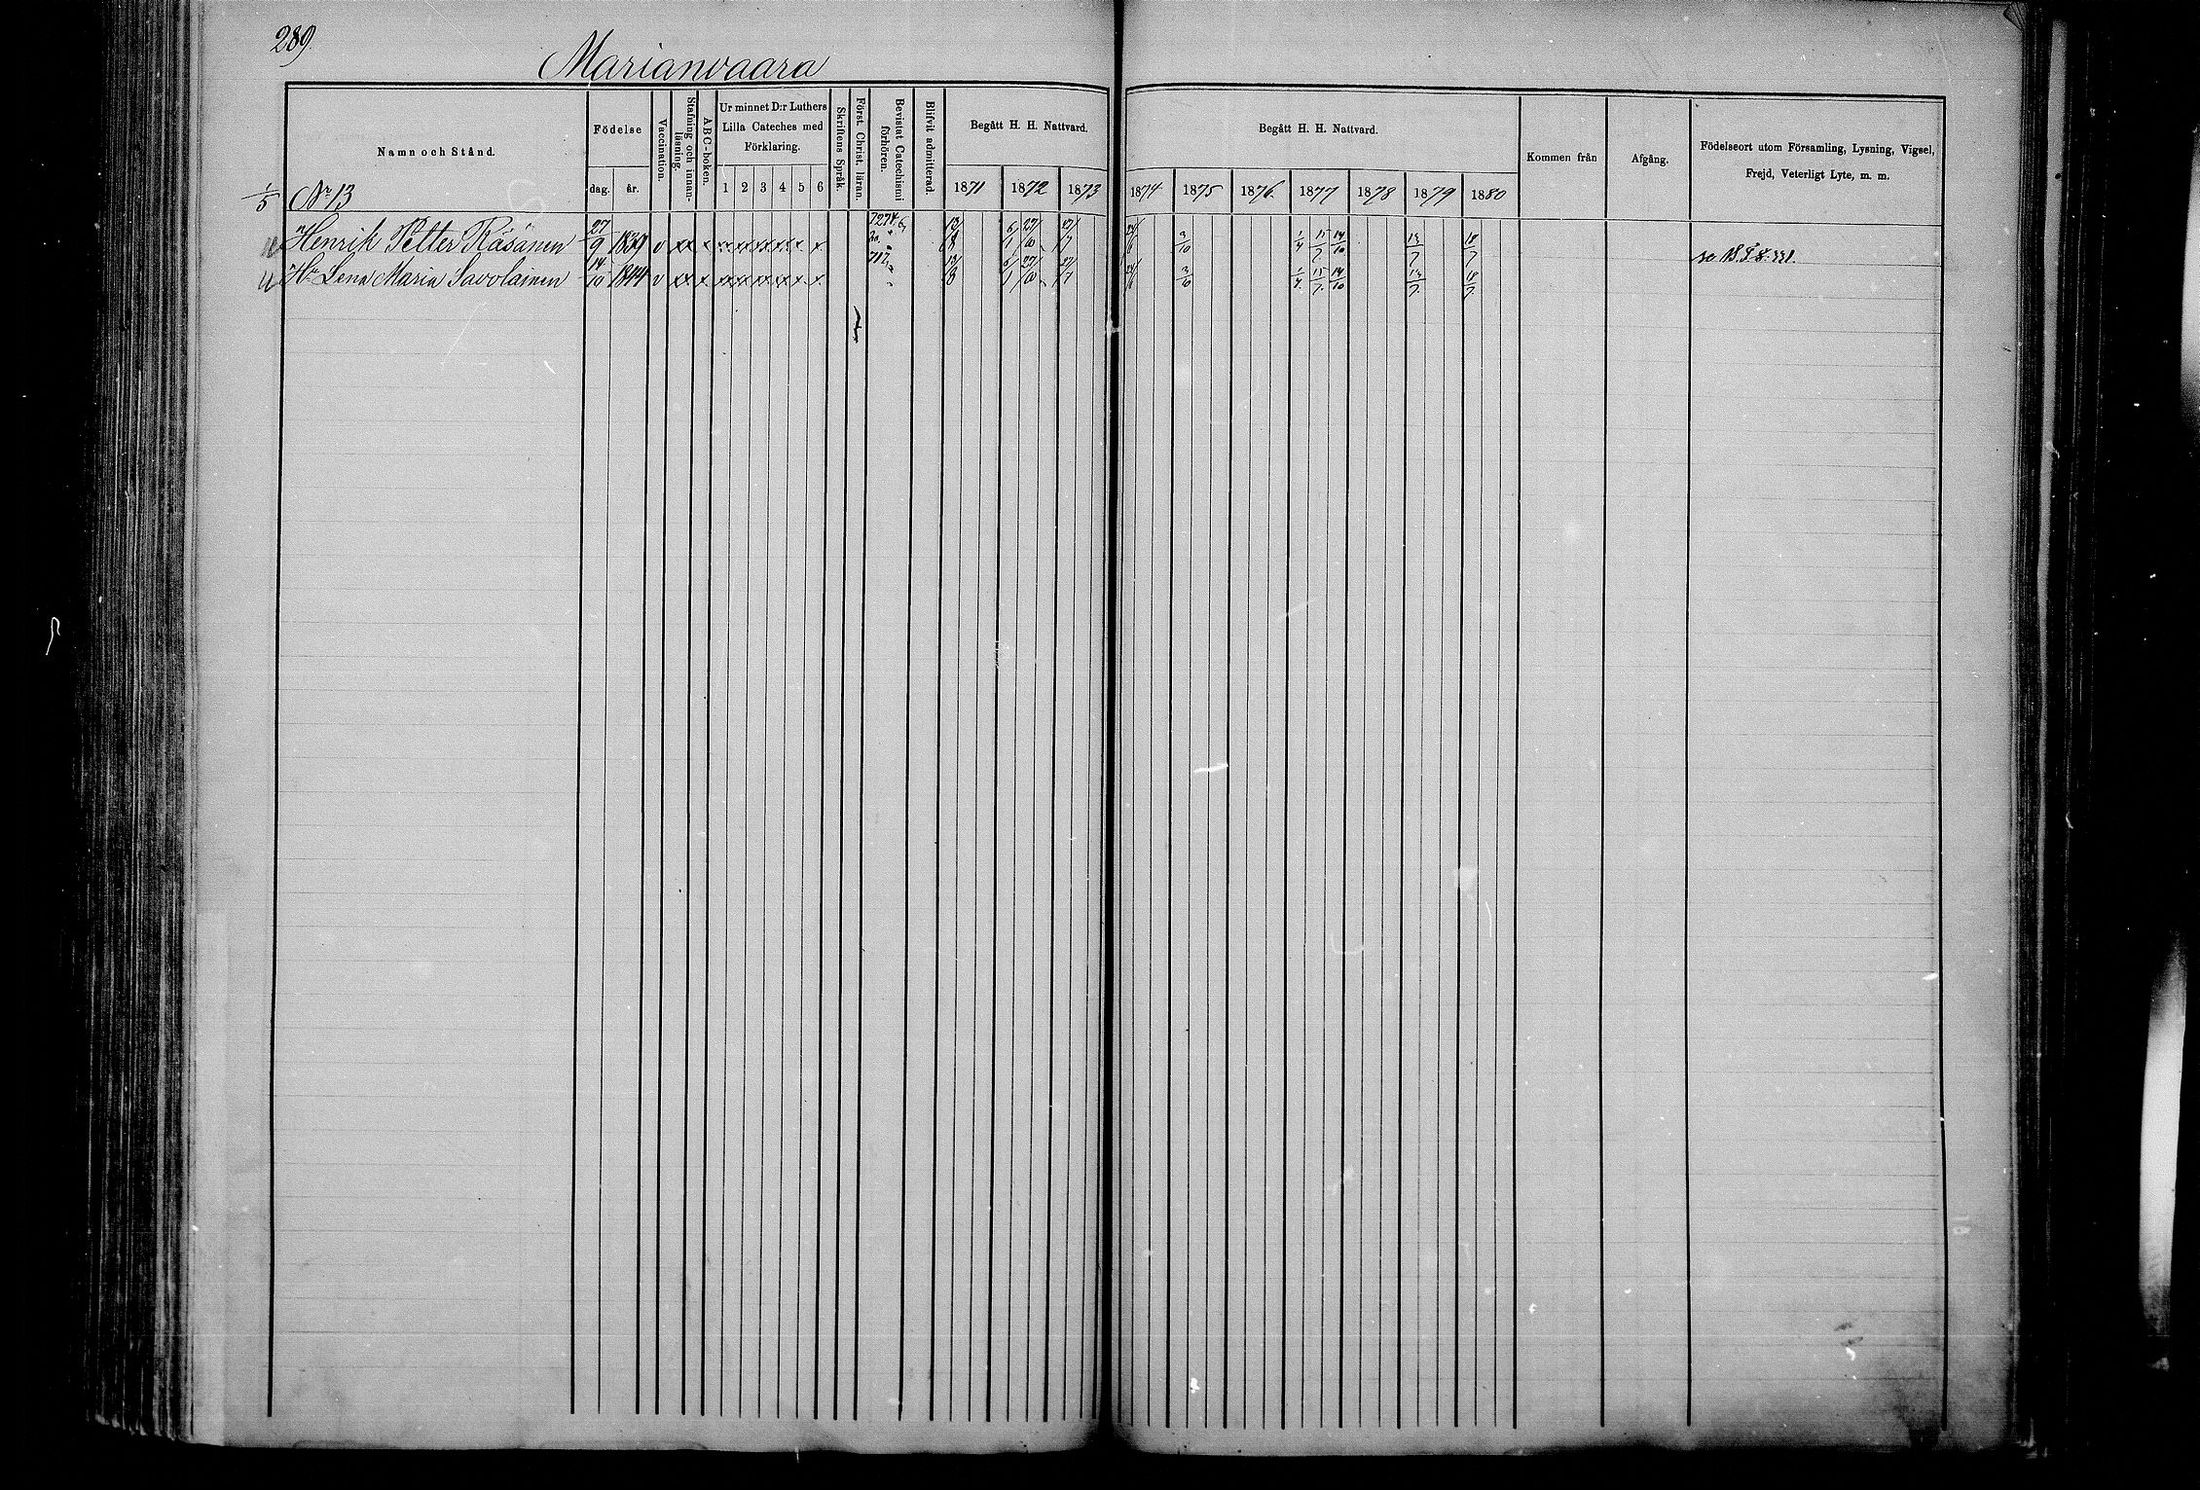 289.
Marianvaara
Namn och Stånd.
Födelse
dag. år.
Vaccination.
Stafning och innan-
läsning.
ABC-boken.
Ur minnet D:r Luthers
Lilla Cateches med
Förklaring.
1 2 3 4 5 6
Skriftens Språk.
Först. Christ. läran.
Bevistat Catechismi
förhören.
Blifvit admitterad.
Begått H. H. Nattvard.
1871 1872 1873
Begått H. H. Nattvard.
1874 1875 1876. 1877 1878 1879 1880
Kommen från
Afgång.
Födelseort utom Församling, Lysning, Vigsel,
Frejd, Veterligt Lyte, m. m.
1/5 No 13
Henrik Petter Räsänen 27/9 1839 v xx x x x x x x x x 13/8 6/1 27/10 27/7 24/6 3/10 1/4 15/7 14/10 13/7 18/7
Hu Lena Maria Savolainen 14/10 1844 v xx x x x x x x x x 13/8 6/1 27/10 27/7 24/6 3/10 1/4 15/7 14/10 13/7 18/7